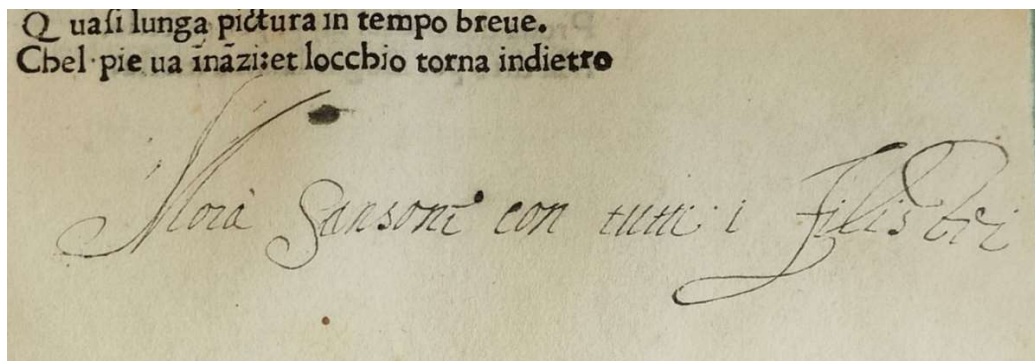 Q uaſi lunga pictura in tempo breue.
Chel pie ua īnāzi:et locchio torna indietro
Morà Sansone con tutti i Filistei